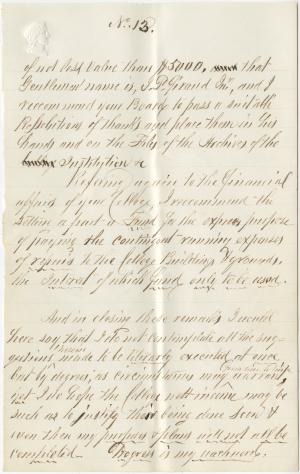 No. 13.
of not less value than $5000, that
Gentleman name is, J. P. Girard Jnr, and I
recommend your Board to pass a suitable
Resolutions of thanks and place them in his
hands and on the Files of the Archives of the
Institution &c
Refering again to the Financial
affairs of your College, I recommend the
setting a part a Fund for the express purpose
of paying the contingent running expenses
of repairs to the College Buildings & grounds,
the Interest of which Fund only to be used.
And in closing these remarks I would
here say that I do not contemplate all the sug-
gestions herein made to be literaly executed at once
but by degrees, as circumstances may warrant,
yet I do hope the future income may be
such as to justify their being done soon &
even then my proposed plans will not all be
completed. Progress is my watchword.